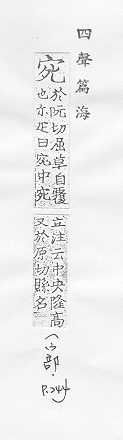 四聲篇海
宛
於阮切屈草自覆
也尒疋曰宛中宛
丘注云中央隆高
又於原切縣名
(宀部.
P.244)